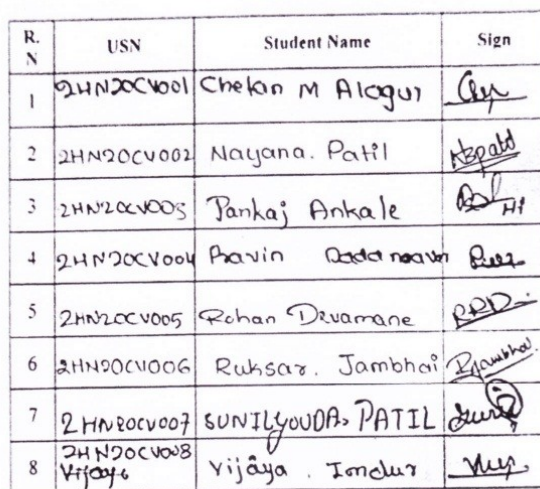 R. N USN Student Name Sign
1 2HN20CV001 Chetan M Alagur
2 2HN20CV002 Nayana. Patil NBpatil
3 2HN20CV003 Pankaj Ankale
4 2HN20CV004 Pravin
5 2HN20CV005 Rohan Devamane RRD
6 2HN20CV006 Ruksar. Jambhai Rjambhai
7 2HN20CV007 SUNILYOUDA. PATIL
8 2HN20CV008 Vijaya . Indur